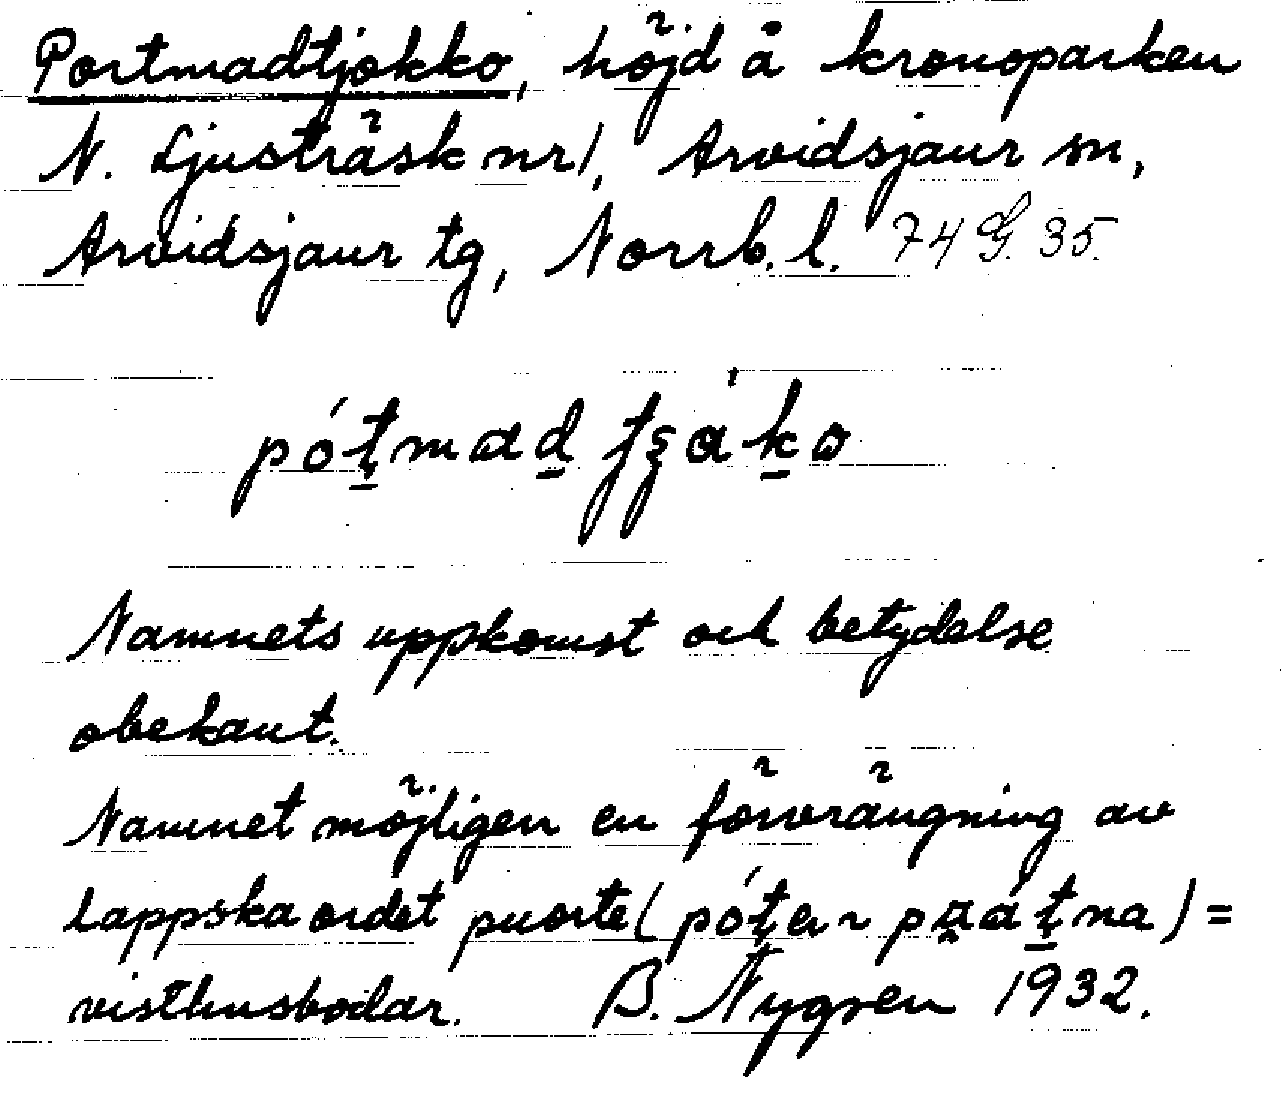 Portmadtjokko, höjd å kronoparken
N. Ljusträsk nr 1, Arvidsjaur sn,
Arvidsjaur tg, Norrb. l. 74 G. 35.
Namnets uppkomst och betydelse
obekant.
Namnet möjligen en förvrängning av
lappska ordet puorte (
) =
visthusbodar. B. Nygren 1932.